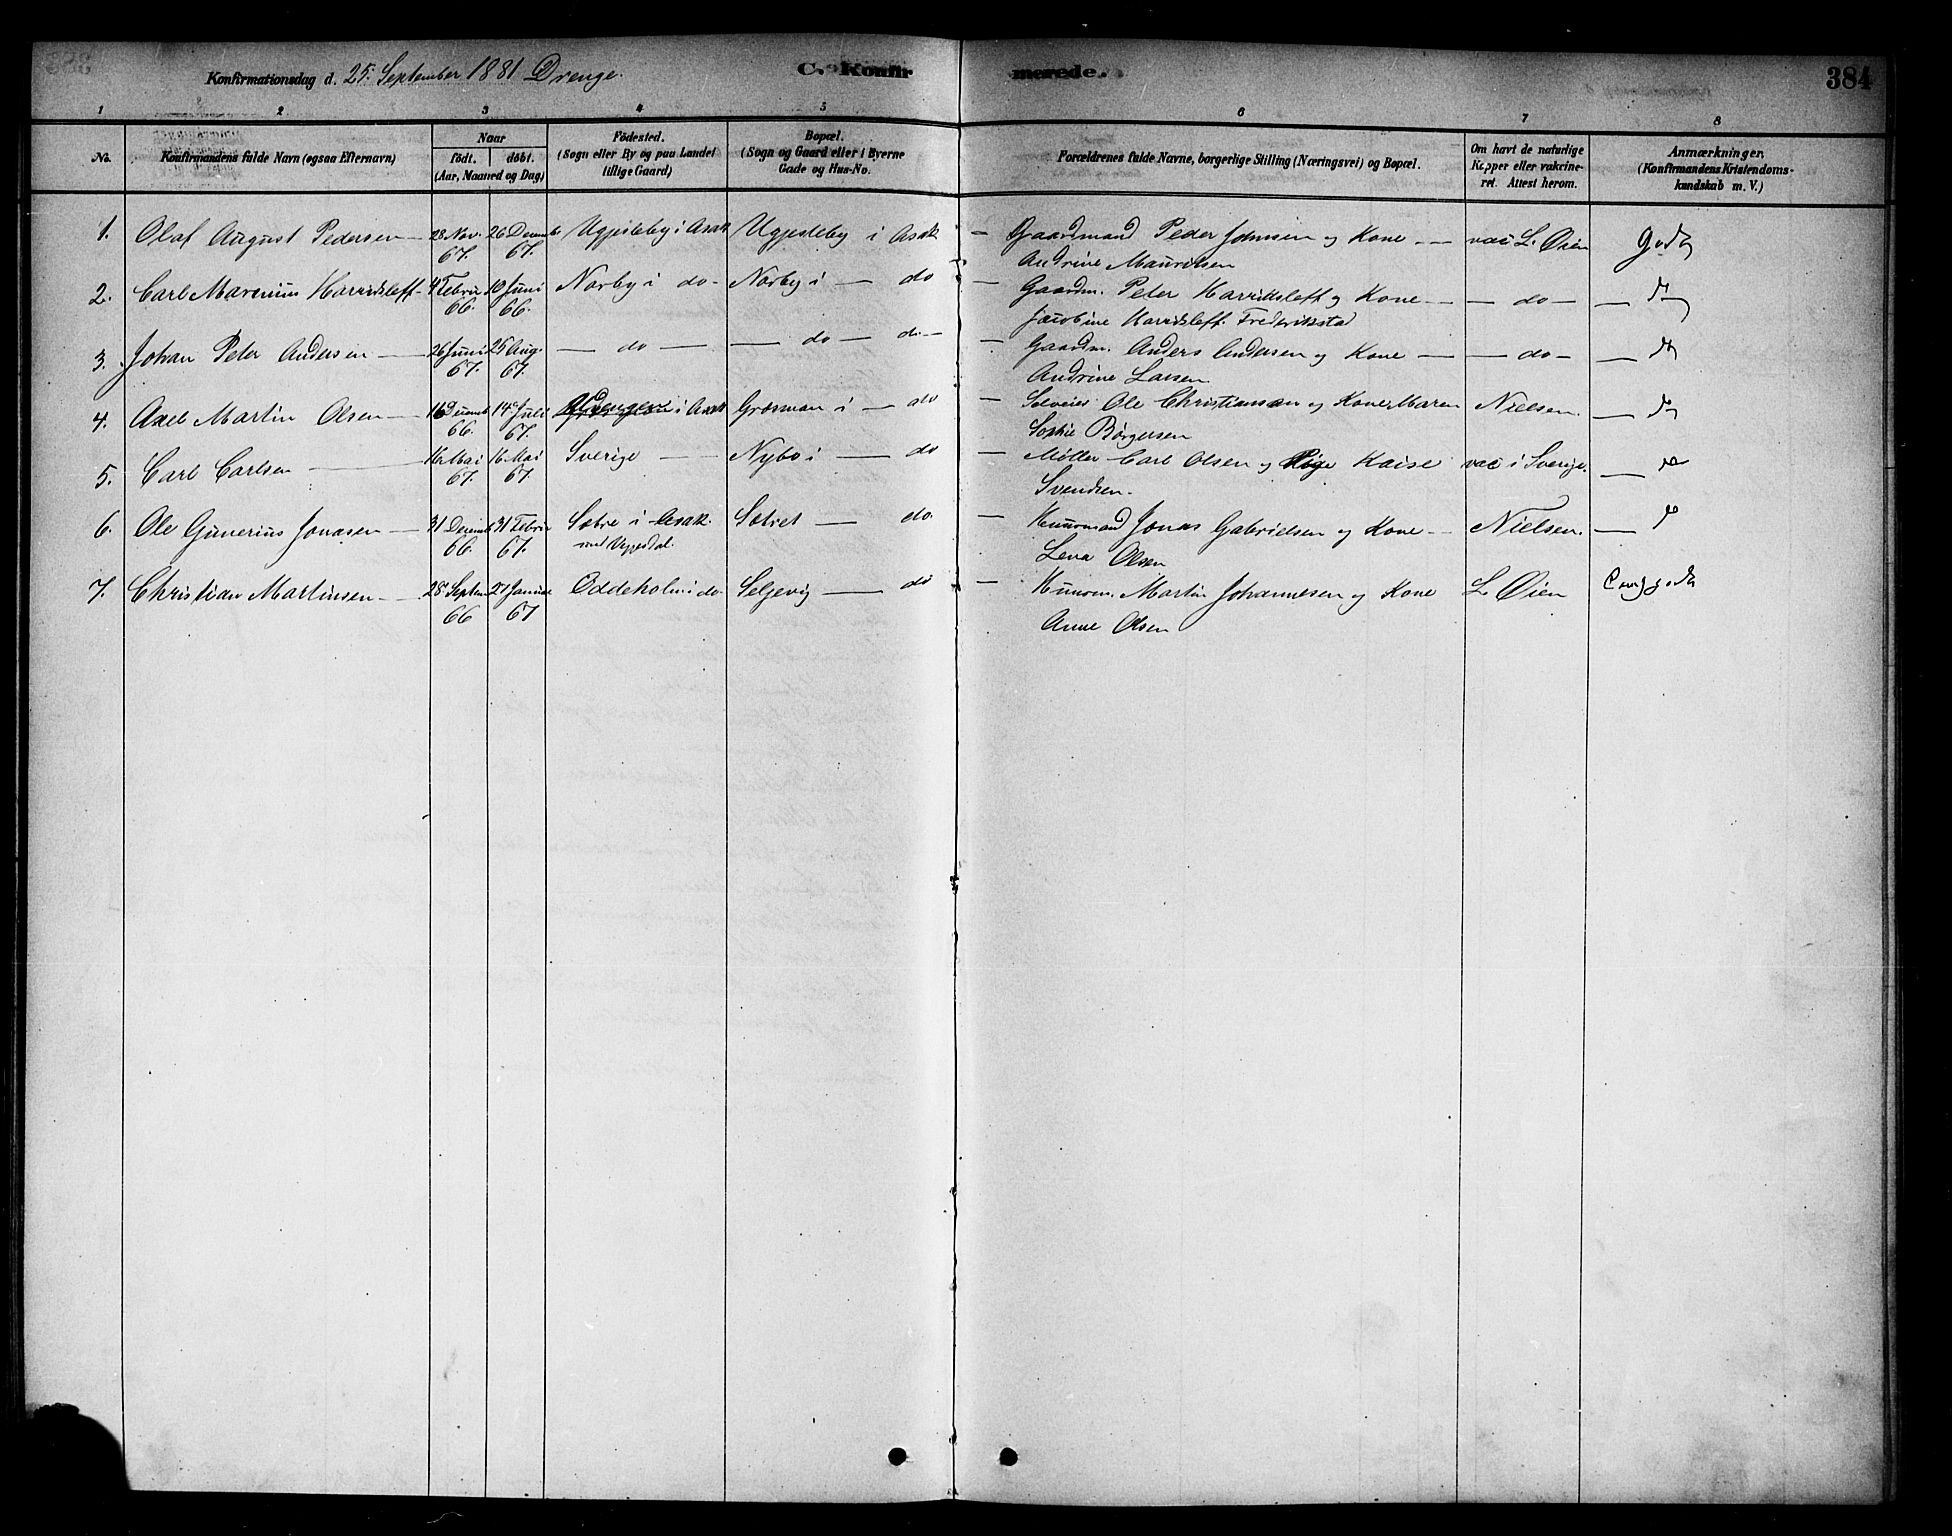 Konfirmationsdag d. 25. September 1881 Drenge.
C. Konfir merede.
384
1 2 3 4 5 6 7 8
No.
Konfirmandens fulde Navn (ogsaa Efternavn)
Naar
født. døbt.
(Aar, Maaned og Dag)
Fødested.
(Sogn eller By og paa Landet
tillige Gaard)
Bopæl.
(Sogn og Gaard eller i Byerne
Gade og Hus-No.
Forældrenes fulde Navne, borgerlige Stilling (Næringsvei) og Bopæl.
Om havt de naturlige
Kopper eller vakcine-
ret. Attest herom.
Anmærkninger.
(Konfirmandens Kristendoms-
kundskab m. V.)
1. Olaf August Pedersen — 28 Nov. 26 Decemb Ugjesteby i Asak Ugjesteby i Asak — Gaardmand Peder Johnsen og Kone — vac L. Øien Godt
67. 67. Andrine Mauritsen
2. Carl Marenius Harridsleff 4 Febru 10 Juni Norby i do - Norby i — do — Gaardm. Peter Harridsleff og Kone — — do — — do
66. 66. Jacobine Harridsleff. Frederikstad
3. Johan Peter Andersen — 26 Juni 25 Aug. — do — — do — do — — Gaardm. Anders Andersen og Kone — — do — — do
67. 67. Andrine Larsen
4. Axel Martin Olsen — 16 Decemb 14 Juli i Asak Grosman i — do — Selveier Ole Christiansen og Kone Maren Nielsen. — do
66. 67. Sophie Børgersen
5. Carl Carlsen — 16 Mai 16 Mai Sverige — Nybo i — do — Møller Carl Olsen og Pige Kaise vac i Sverige. — do
67. 67. Svendsen.
6. Ole Gunerius Jonasen — 31 Decemb 31 Febru Sætre i Asak. Sætret — do. — Huusmand Jonas Gabrielsen og Kone — Nielsen. — do
66. 67. Lena Olsen
7. Christian Martinsen — 28 Septem 27 Januar Oddeholm i do Seljevig — do — Huusm. Martin Johannesen og Kone L. Øien godt
66 67 Anne Olsen